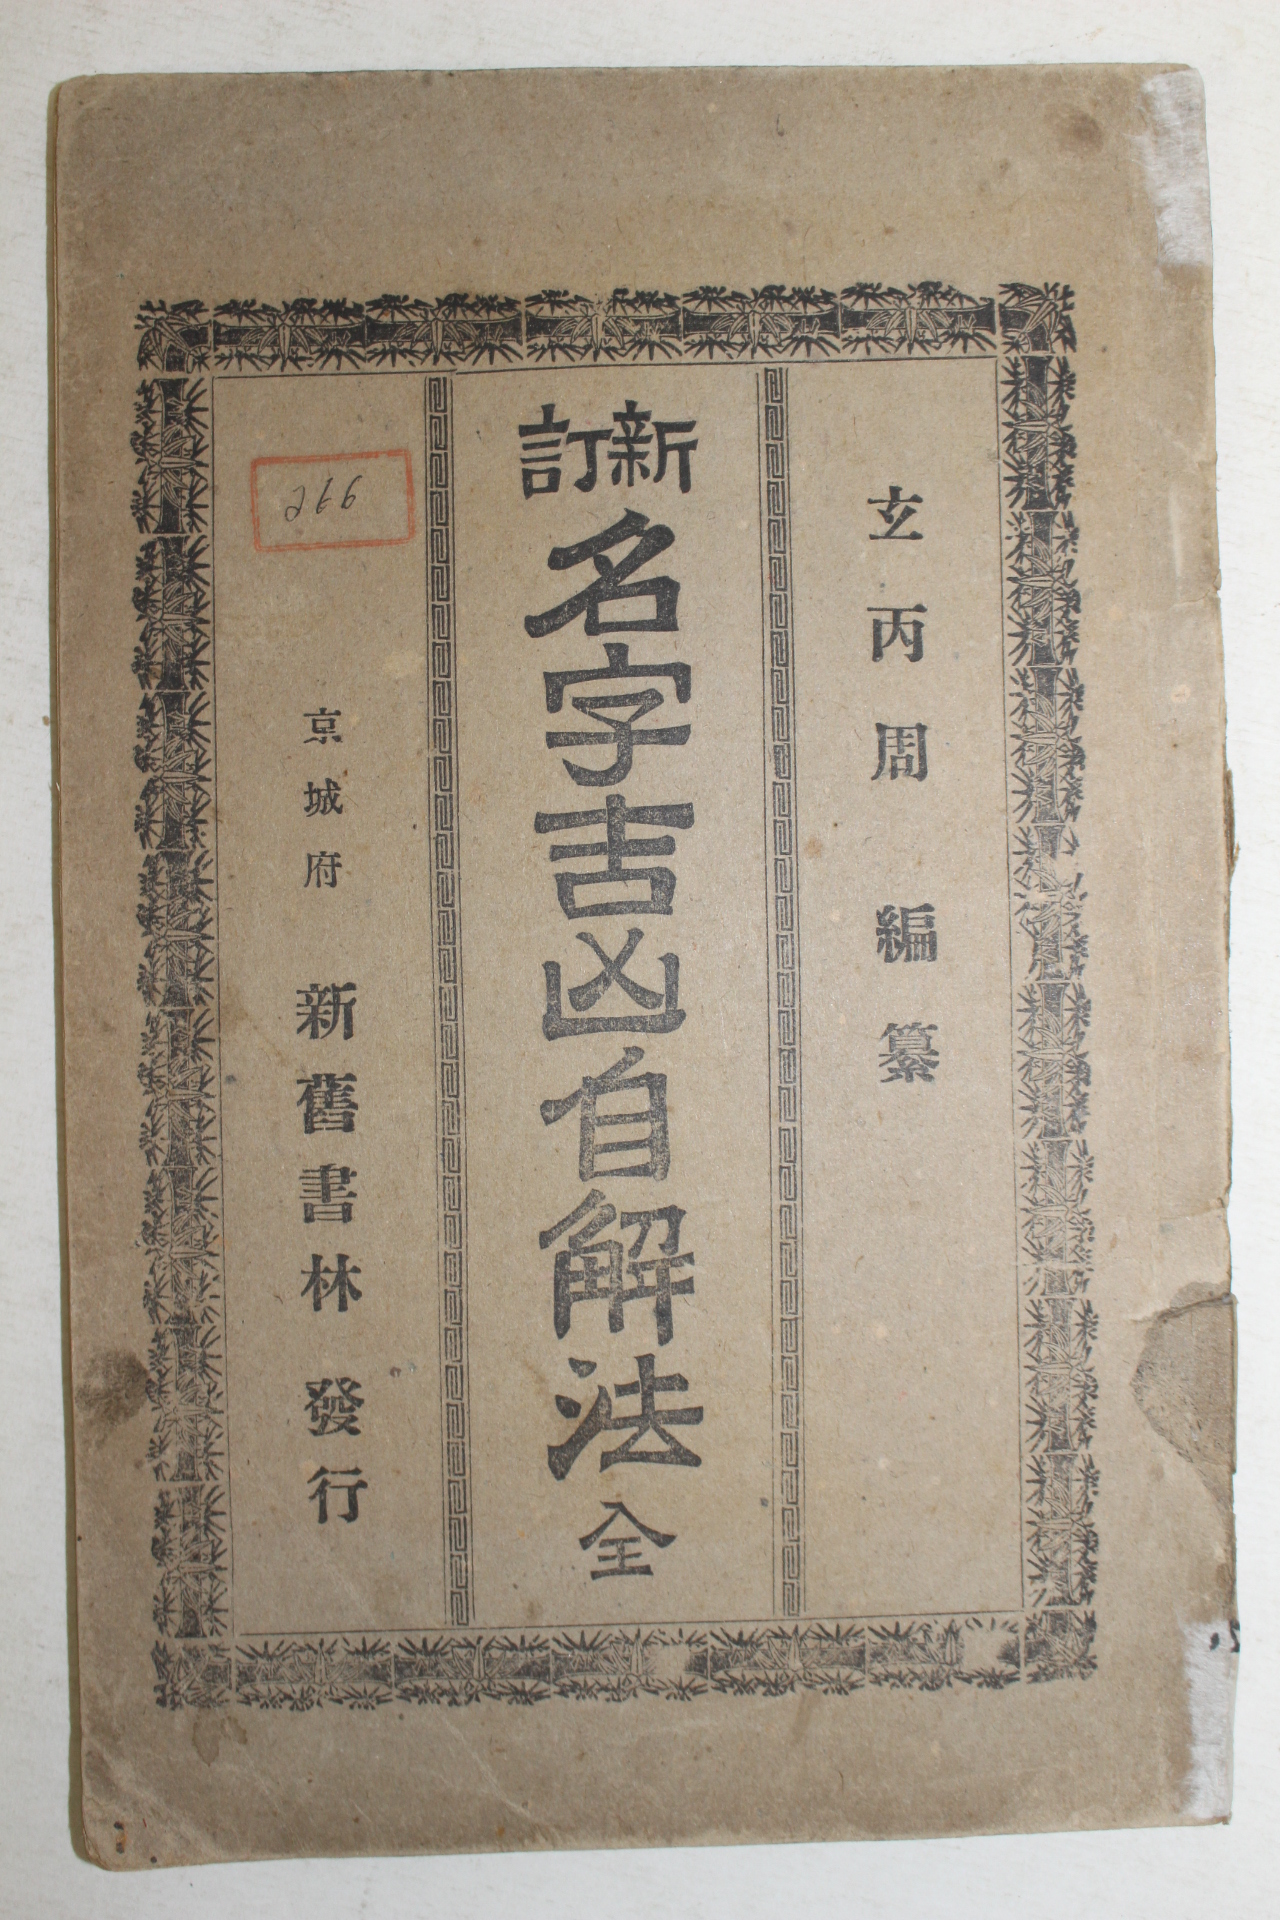 玄丙周 編纂
新訂
名字吉凶自解法 全
266
京城府 新舊書林 發行